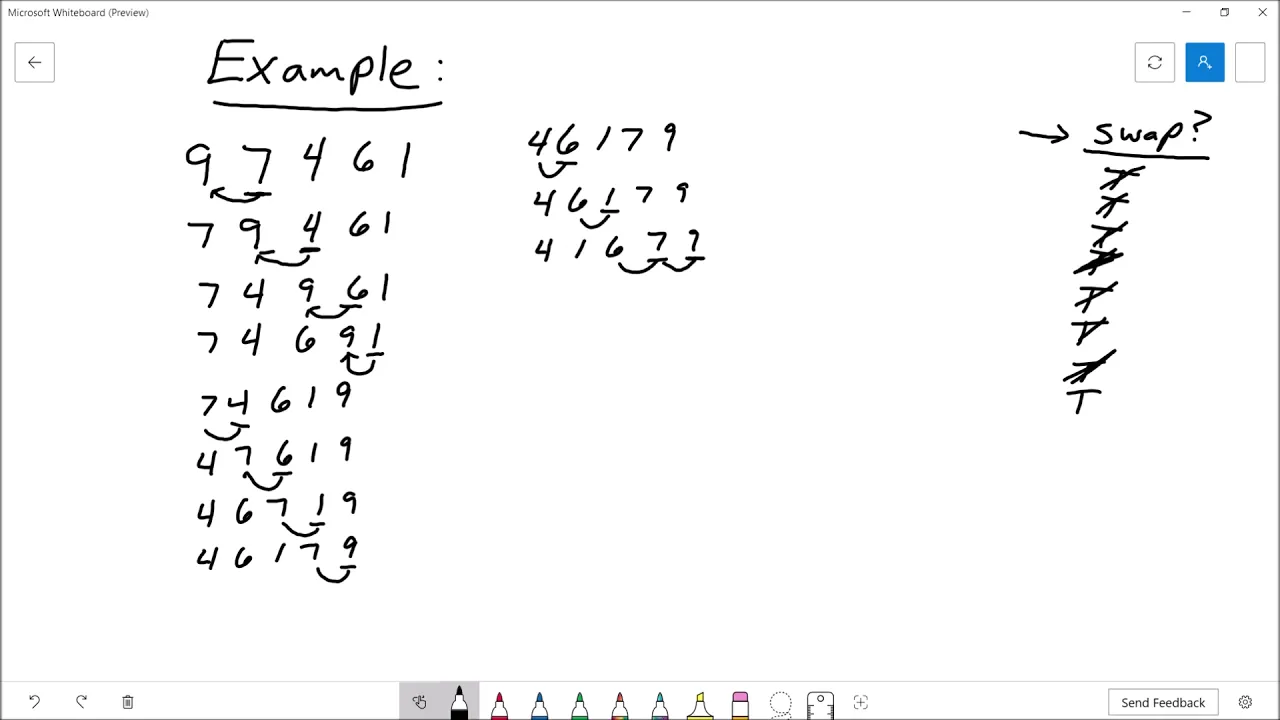 Microsoft Whiteboard (Preview)
Example:
9 7 4 6 1
7 9 4 6 1
7 4 9 6 1
7 4 6 9 1
7 4 6 1 9
4 7 6 1 9
4 6 7 1 9
4 6 1 7 9
4 6 1 7 9
4 6 1 7 9
4 1 6 7 9
swap?
T
Send Feedback